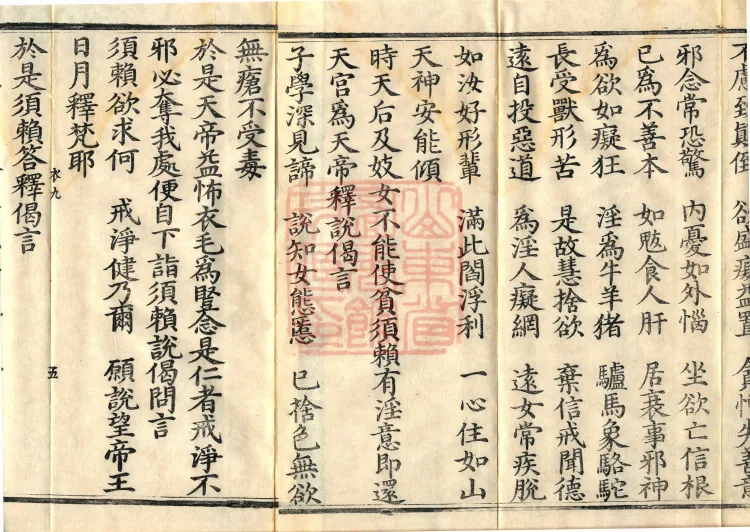 不慮至眞性　欲盛癡益置　貪惰失善意
邪念常恐驚　内憂如外惱　坐欲亡信根
已爲不善本　如鬾食人肝　居衰事邪神
爲欲如癡狂　淫爲牛羊猪　驢馬象駱駝
長受獸形苦　是故慧捨欲　棄信戒聞德
遠自投惡道　爲淫人癡網　遠女常疾脫
如汝好形輩　滿此閻浮利　一心住如山
天神安能傾
時天后及妓女不能使貧須賴有淫意即還
天宫爲天帝釋說偈言
子學深見諦　說知女態慝　已捨色無欲
無瘡不受毒
於是天帝益怖衣毛爲豎念是仁者戒淨不
邪必奪我處便自下詣須賴說偈問言
須賴欲求何　戒淨健乃爾　願說望帝王
日月釋梵耶
衣九　五
於是須賴答釋偈言